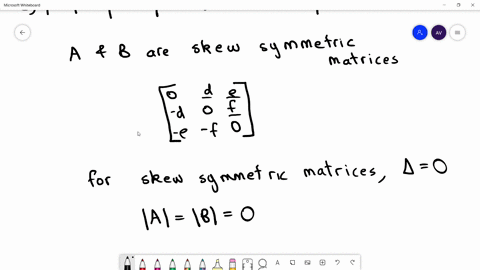 Microsoft Whiteboard
A & B are skew symmetric
matrices
0 d e
-d 0 f
-e -f 0
for skew symmetric matrices, Δ = 0
|A| = |B| = 0
AV